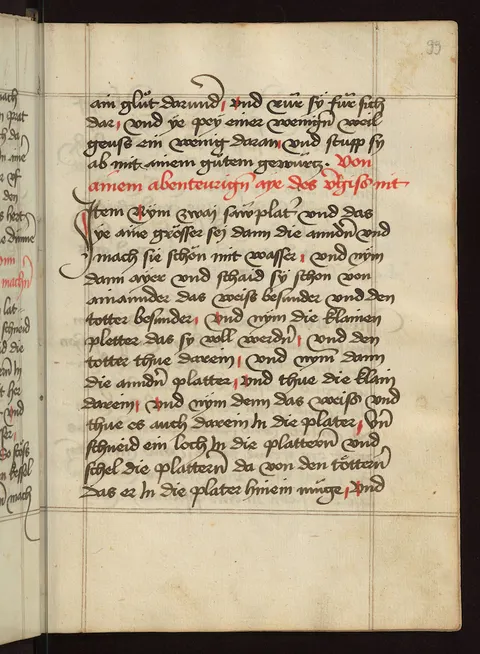 99
ain glůt darundn̄ , vnd rür sy für sich
dar , vnd ye pey ainer wenign̄ weil
geuss ein wenig daran , vnd stupp sy
ab mit ainem gůtem gewürtz . Von
ainem abenteurign̄ aye des v̄giss nit
Item Nym zwai sawplat' vnd das
ye aine grösser sei dann die anndn̄ vnd
mach sie schön mit wasser , vnd nym
dann ayer vnd schaid sy schon von
ainannder das weiss besunder vnd den
totter besunder , vnd nym die klainen
pletter das sy voll werdn̄ , vnd den
totter thue darein , vnd nym dann
die anndn̄ platter , vnd thue die klain
darein , vnd nym denn das weiss vnd
thue es auch darein In die plater , Vn̄
schneid ein loch In die plattern̄ vnd
schel die plattern̄ da von den töttern̄
Das er In die plater hinein müge , Vnd